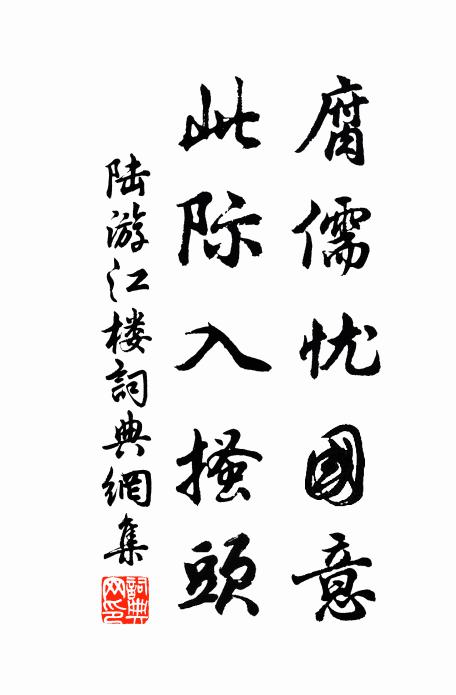 腐儒忧國意
此际入搔頭
陆游江楼詞典網集
詞典网印